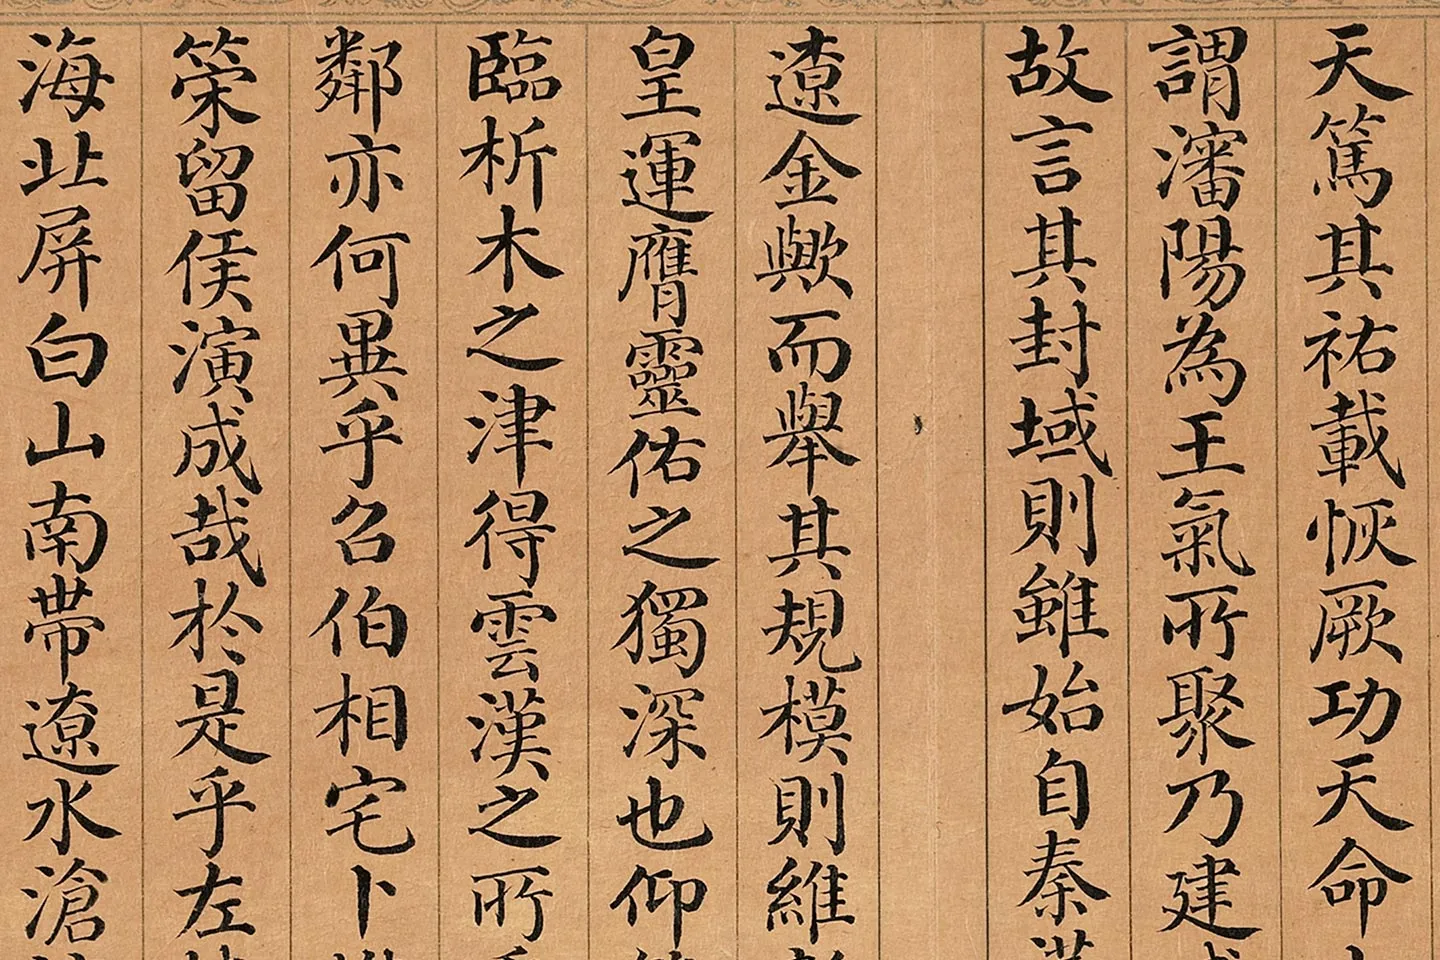 天篤其祜載恢厥功天命
謂瀋陽為王氣所聚乃建
故言其封域則雖始自秦
遼金歟而舉其規模則維
皇運膺靈佑之獨深也仰
臨析木之津得雲漢之所
鄰亦何異乎召伯相宅卜
榮留侯演成哉於是乎左
海北屏白山南帶遼水滄